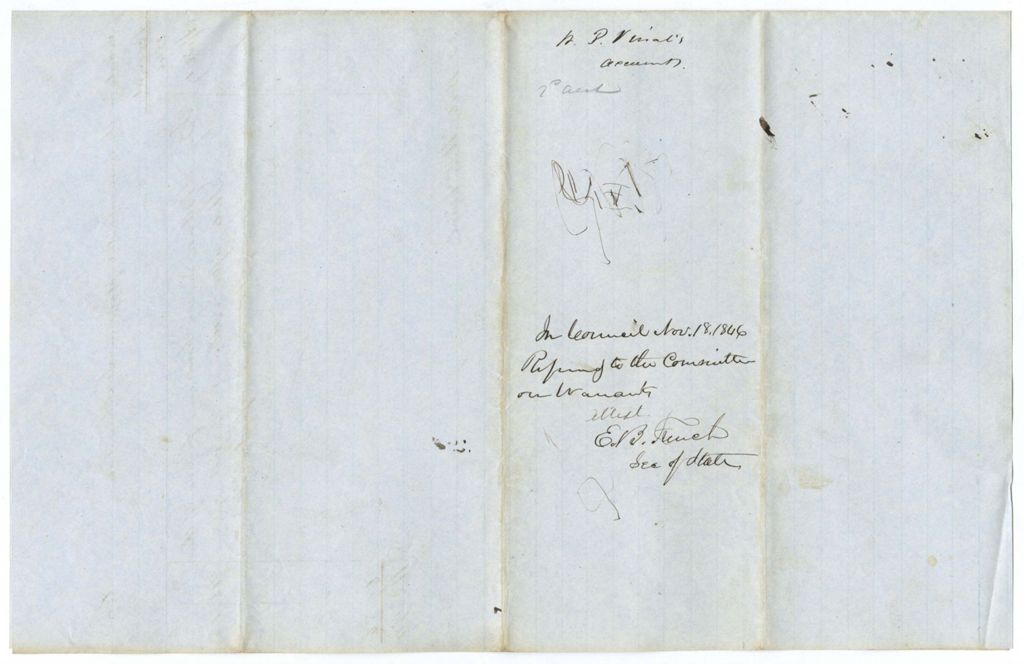 P. Vinal's
accounts.
In Council Nov. 18, 1846
Referred to the Committee
on Warrants
Attest
E. B. French
Sec of State